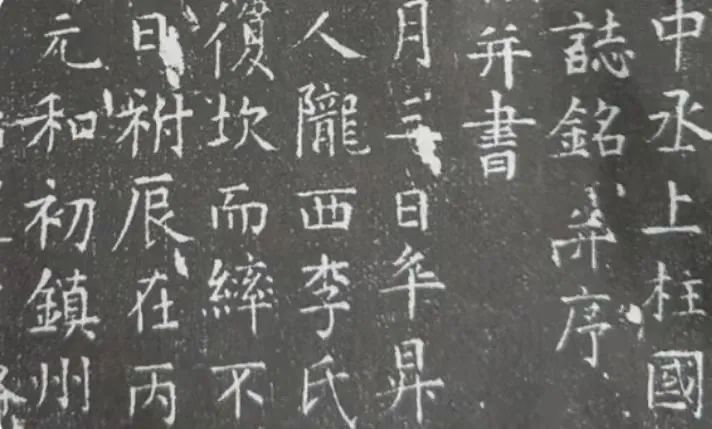 中丞上柱國
誌銘并序
并書
月三日卒昇
人隴西李氏
復坎而綍不
日祔辰在丙
元和初鎮州